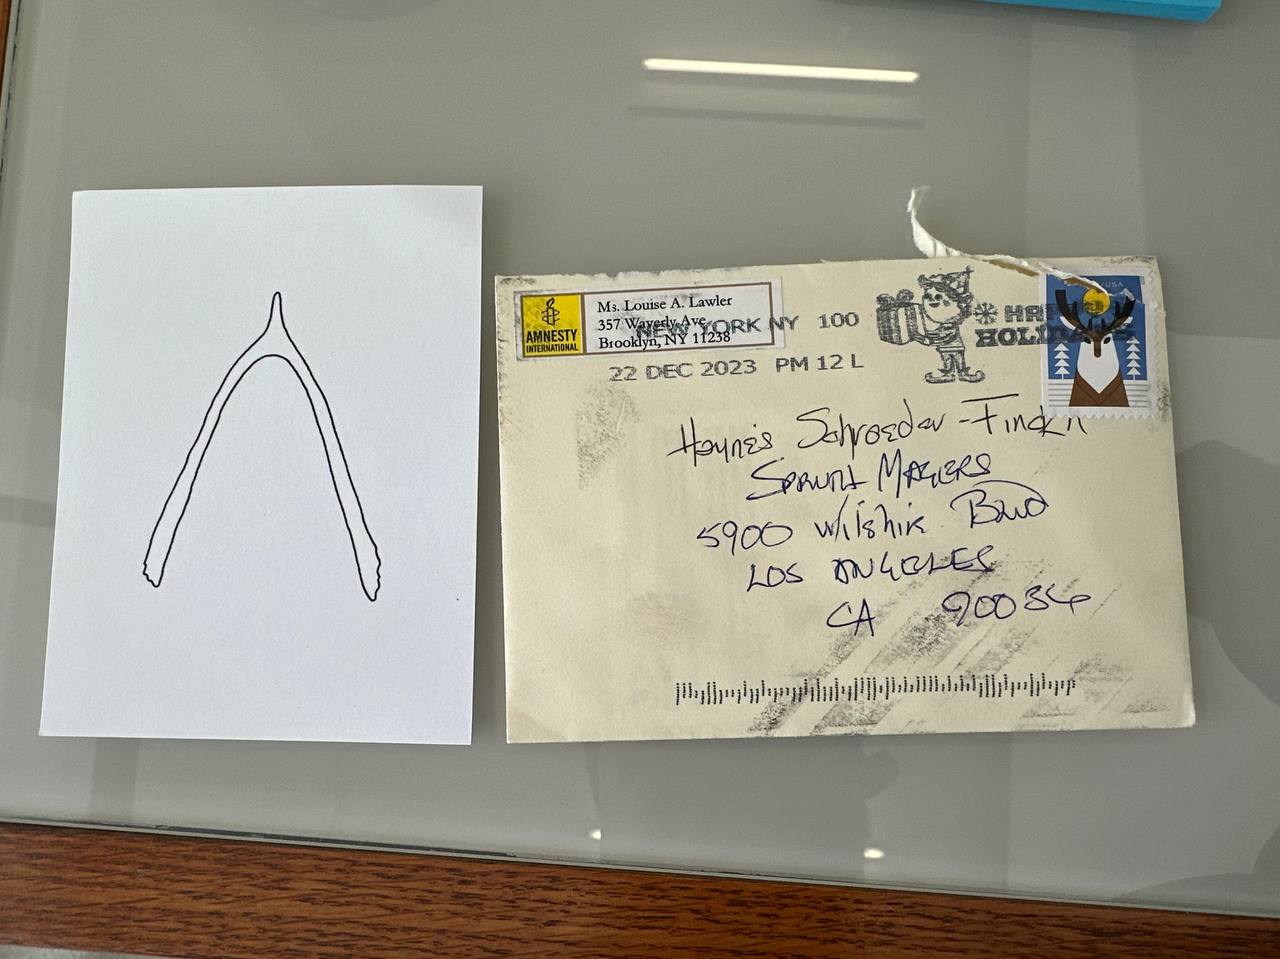 AMNESTY
INTERNATIONAL
Ms. Louise A. Lawler
357 Waverly Ave
Brooklyn, NY 11238
NEW YORK NY 100
22 DEC 2023 PM 12 L
HAPPY
HOLIDAYS
USA
Schroeder-Finckh
MAGERS
5900 Wilshire Blvd
LOS ANGELES
CA 90036